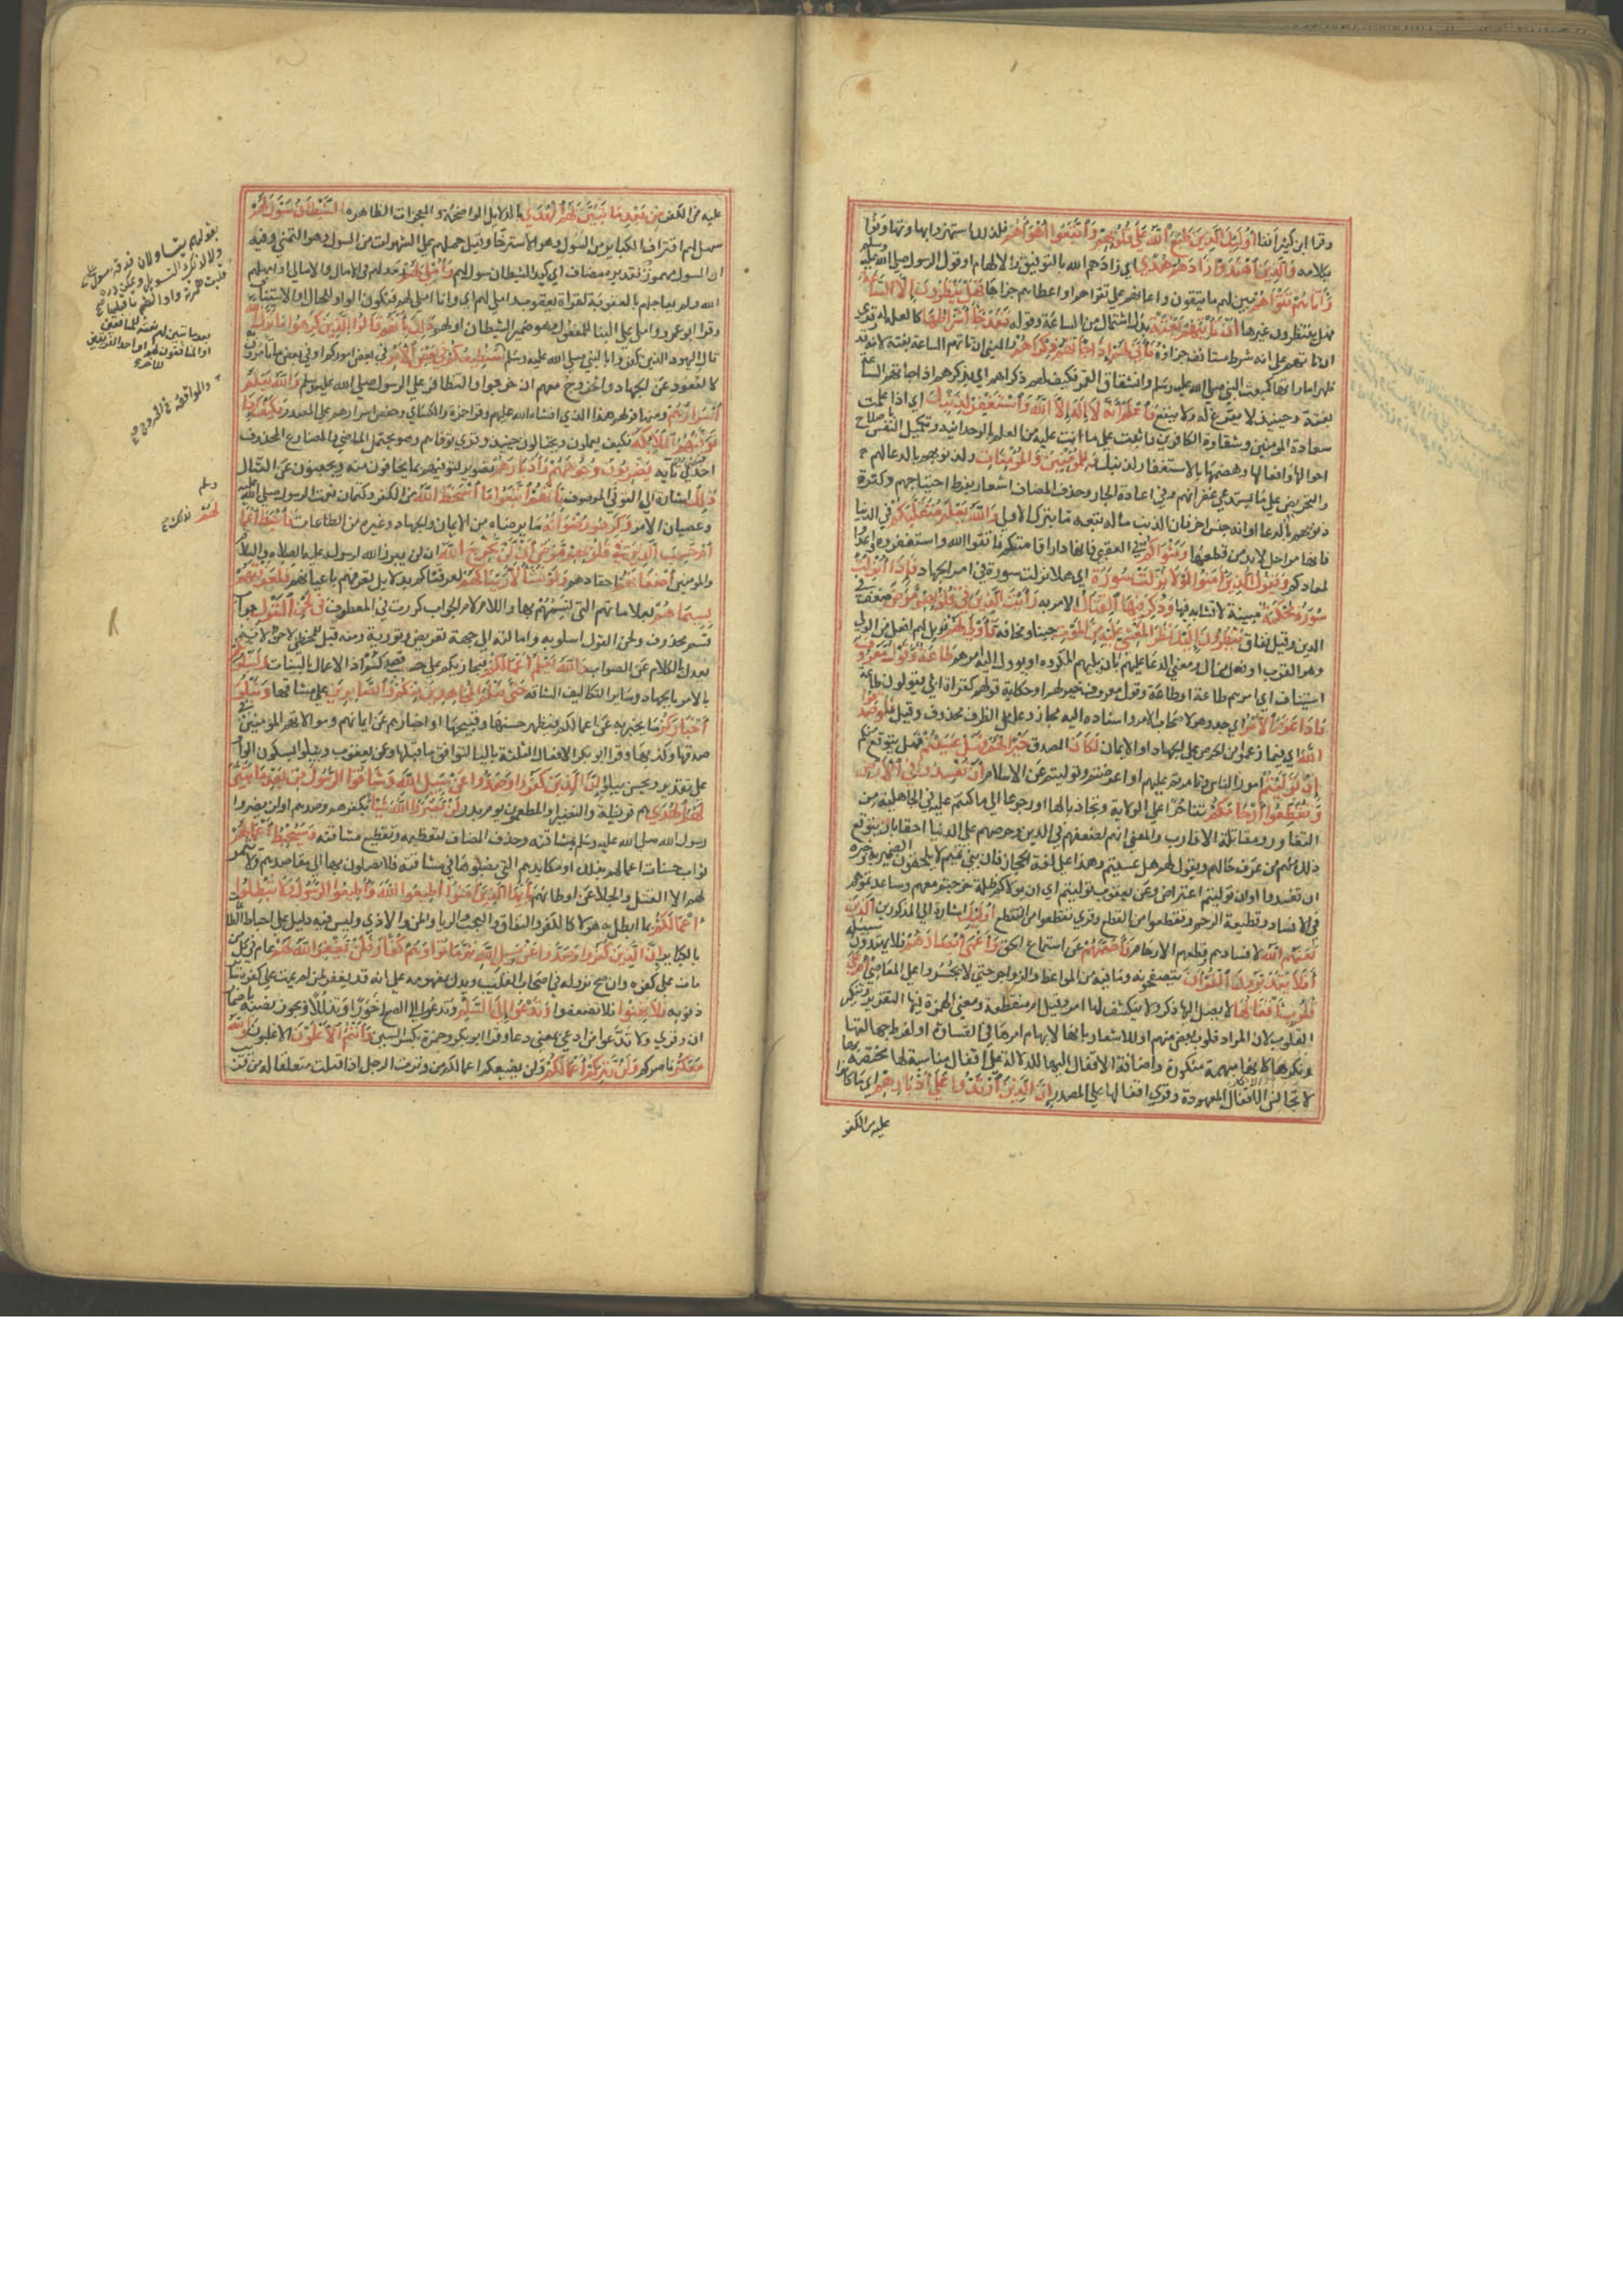 وقرا ابن كثير أنفا أُولَئِكَ الَّذِينَ طَبَعَ اللَّهُ عَلَى قُلُوبِهِمْ وَاتَّبَعُوا أَهْوَاءَهُمْ فلذلك استهزؤا بها وتهاونوا
بكلامه وَالَّذِينَ اهْتَدَوْا زَادَهُمْ هُدًى اي زادهم الله بالتوفيق والالهام او قول الرسول صلى الله عليه وسلم
وَآتَاهُمْ تَقْوَاهُمْ بين لهم ما يتقون واعانهم على تقواهم او اعطاهم جزاها فَهَلْ يَنْظُرُونَ إِلَّا السَّاعَةَ
فهل ينتظرون غيرها أَنْ تَأْتِيَهُمْ بَغْتَةً بدل اشتمال من الساعة وقوله فَقَدْ جَاءَ أَشْرَاطُهَا كالعلة له وقري
ان تاتهم على انه شرط مستانف جزاؤه فَأَنَّى لَهُمْ إِذَا جَاءَتْهُمْ ذِكْرَاهُمْ والمعنى ان تاتهم الساعة بغتة لانه قد
ظهر اماراتها كمبعث النبي صلى الله عليه وسلم وانشقاق القمر فكيف لهم ذكراهم اي تذكرهم اذا جاتهم الساعة
بغتة وحينئذ لا يفرغ له ولا ينفع فَاعْلَمْ أَنَّهُ لَا إِلَهَ إِلَّا اللَّهُ وَاسْتَغْفِرْ لِذَنْبِكَ اي اذا علمت
سعادة المؤمنين وشقاوة الكافرين فاثبت على ما انت عليه من العلم بالوحدانية وتكميل النفس باصلاح
احوالها وافعالها وهضمها بالاستغفار لذنبك وَلِلْمُؤْمِنِينَ وَالْمُؤْمِنَاتِ ولذنوبهم بالدعا لهم
والتحريض على ما يستدعي غفرانهم وفي اعادة الجار وحذف المضاف اشعار بفرط احتياجهم وكثرة
ذنوبهم بالدعا وانه جنس اخر فان الذنب ما له تبعة ما بترك الاولى وَاللَّهُ يَعْلَمُ مُتَقَلَّبَكُمْ في الدنيا
فانها مراحل لا بد من قطعها وَمَثْوَاكُمْ في العقبى فانها دار اقامتكم فاتقوا الله واستغفروه واعدوا
لمعادكم وَيَقُولُ الَّذِينَ آمَنُوا لَوْلَا نُزِّلَتْ سُورَةٌ اي هلا نزلت سورة في امر الجهاد فَإِذَا أُنْزِلَتْ
سُورَةٌ مُحْكَمَةٌ مبينة لا تشابه فيها وَذُكِرَ فِيهَا الْقِتَالُ الامر به رَأَيْتَ الَّذِينَ فِي قُلُوبِهِمْ مَرَضٌ ضعف في
الدين وقيل نفاق يَنْظُرُونَ إِلَيْكَ نَظَرَ الْمَغْشِيِّ عَلَيْهِ مِنَ الْمَوْتِ جبنا ومخافة فَأَوْلَى لَهُمْ فويل لهم افعل من الولي
وهو القرب او فعلى من ال ومعنى الدعا عليهم بان يليهم المكروه او يؤول اليه امرهم طَاعَةٌ وَقَوْلٌ مَعْرُوفٌ
استيناف اي امرهم طاعة او طاعة وقول معروف خير لهم او حكاية قولهم لقراة ابي يقولون طاعة
فَإِذَا عَزَمَ الْأَمْرُ اي جد وهو لاصحاب الامر واسناده اليه مجاز وعامل الظرف محذوف وقيل فَلَوْ صَدَقُوا
اللَّهَ اي فيما زعموا من الحرص على الجهاد او الايمان لَكَانَ الصدق خَيْرًا لَهُمْ فَهَلْ عَسَيْتُمْ فهل يتوقع منكم
إِنْ تَوَلَّيْتُمْ امور الناس وتامرتم عليهم او اعرضتم وتوليتم عن الاسلام أَنْ تُفْسِدُوا فِي الْأَرْضِ
وَتُقَطِّعُوا أَرْحَامَكُمْ تناحرا على الولاية وتجاذبا لها او رجوعا الى ما كنتم عليه في الجاهلية من
التغاور ومقاتلة الاقارب والمعنى انهم لضعفهم في الدين وحرصهم على الدنيا احقا بان يتوقع
ذلك منهم من عرف حالهم ويقول لهم هل عسيتم وهذا على لغة الحجاز فان بني تميم لا يلحقون الضمير به وخبره
ان تفسدوا وان توليتم اعتراض وعن يعقوب توليتم اي ان تولاكم ظلمة خرجتم معهم وساعدتموهم
في الافساد وقطيعة الرحم وتقطعوا من القطع وقري تقطعوا من التقطع أُولَئِكَ اشارة الى المذكورين الَّذِينَ
لَعَنَهُمُ اللَّهُ لافسادهم وقطعهم الارحام فَأَصَمَّهُمْ عن استماع الحق وَأَعْمَى أَبْصَارَهُمْ فلا يهتدون سبيله
أَفَلَا يَتَدَبَّرُونَ الْقُرْآنَ يتصفحونه وما فيه من المواعظ والزواجر حتى لا يجسروا على المعاصي أَمْ عَلَى
قُلُوبٍ أَقْفَالُهَا لا يصل اليها ذكر ولا ينكشف لها امر وقيل ام منقطعة ومعنى الهمزة فيها التقرير وتنكير
القلوب لان المراد قلوب بعض منهم او للاشعار بانها لابهام امرها في القساوة او لفرط جهالتها
ونكرها كانها مبهمة منكورة واضافة الاقفال اليها للدلالة على اقفال مناسبة لها مختصة بها
لا تجانس الاقفال المعهودة وقري اقفالها على المصدر إِنَّ الَّذِينَ ارْتَدُّوا عَلَى أَدْبَارِهِمْ اي ما كانوا
عليه من الكفر
عليه من الكفر مِنْ بَعْدِ مَا تَبَيَّنَ لَهُمُ الْهُدَى بالدلايل الواضحة والمعجزات الظاهرة الشَّيْطَانُ سَوَّلَ لَهُمْ
سهل لهم اقتراف الكباير من السول وهو الاسترخا وقيل حملهم على الشهوات من السول وهو التمني وفيه
ان السول مهموز بتقدير مضاف اي كيد الشيطان سول لهم وَأَمْلَى لَهُمْ ومد لهم في الامال والاماني او امهلهم
الله ولم يعاجلهم بالعقوبة لقراة يعقوب واملي لهم اي وانا املي لهم فتكون الواو للحال او الاستيناف
وقرا ابو عمرو وامل على البنا للمفعول وهو ضمير الشيطان او لهم ذَلِكَ بِأَنَّهُمْ قَالُوا لِلَّذِينَ كَرِهُوا مَا نَزَّلَ اللَّهُ
قال اليهود الذين كفروا بالنبي صلى الله عليه وسلم سَنُطِيعُكُمْ فِي بَعْضِ الْأَمْرِ في بعض اموركم او في بعض ما تامرون به
كالقعود عن الجهاد والخروج معهم ان خرجوا والتظافر على الرسول صلى الله عليه وسلم وَاللَّهُ يَعْلَمُ
أَسْرَارَهُمْ ومنها قولهم هذا الذي افشاه الله عليهم وقرا حمزة والكسائي وحفص اسرارهم على المصدر فَكَيْفَ إِذَا
تَوَفَّتْهُمُ الْمَلَائِكَةُ فكيف يعملون ويحتالون حينئذ وقري توفاهم وهو يحتمل الماضي والمضارع المحذوف
احدى تائيه يَضْرِبُونَ وُجُوهَهُمْ وَأَدْبَارَهُمْ تصوير لتوفيهم بما يخافون منه ويجبنون عن القتال
ذَلِكَ اشارة الى التوفي الموصوف بِأَنَّهُمُ اتَّبَعُوا مَا أَسْخَطَ اللَّهَ من الكفر وكتمان نعت الرسول صلى الله عليه
وعصيان الامر وَكَرِهُوا رِضْوَانَهُ ما يرضاه من الايمان والجهاد وغيره من الطاعات فَأَحْبَطَ أَعْمَالَهُمْ
أَمْ حَسِبَ الَّذِينَ فِي قُلُوبِهِمْ مَرَضٌ أَنْ لَنْ يُخْرِجَ اللَّهُ ان لن يبرز الله لرسوله عليه الصلاة والسلام
والمؤمنين أَضْغَانَهُمْ احقادهم وَلَوْ نَشَاءُ لَأَرَيْنَاكَهُمْ لعرفناكهم بدلايل تعرفهم باعيانهم فَلَعَرَفْتَهُمْ
بِسِيمَاهُمْ بعلاماتهم التي نسمهم بها واللام لام الجواب كررت في المعطوف وَلَتَعْرِفَنَّهُمْ فِي لَحْنِ الْقَوْلِ جواب
قسم محذوف ولحن القول اسلوبه وامالته الى جهة تعريض وتورية ومنه قيل للمخطي لاحن لانه
يعدل بالكلام عن الصواب وَاللَّهُ يَعْلَمُ أَعْمَالَكُمْ فيجازيكم على حسب قصدكم اذ الاعمال بالنيات وَلَنَبْلُوَنَّكُمْ
بالامر بالجهاد وساير التكاليف الشاقة حَتَّى نَعْلَمَ الْمُجَاهِدِينَ مِنْكُمْ وَالصَّابِرِينَ على مشاقها وَنَبْلُوَ
أَخْبَارَكُمْ ما يخبر به عن اعمالكم فيظهر حسنها وقبيحها او اخبارهم عن ايمانهم وموالاتهم المؤمنين في
صدقها وكذبها وقرا ابو بكر الافعال الثلاثة باليا لتوافق ما قبلها وعن يعقوب ونبلو بسكون الواو
على تقدير ونحن نبلو إِنَّ الَّذِينَ كَفَرُوا وَصَدُّوا عَنْ سَبِيلِ اللَّهِ وَشَاقُّوا الرَّسُولَ مِنْ بَعْدِ مَا تَبَيَّنَ
لَهُمُ الْهُدَى هم قريظة والنضير والمطعمون يوم بدر لَنْ يَضُرُّوا اللَّهَ شَيْئًا بكفرهم وصدهم او لن يضروا
رسول الله صلى الله عليه وسلم بمشاقته وحذف المضاف لتعظيمه وتفظيع مشاقته وَسَيُحْبِطُ أَعْمَالَهُمْ
ثواب حسنات اعمالهم بذلك او مكايدهم التي نصبوها في مشاقته فلا يصلون بها الى مقاصدهم ولا تثمر
لهم الا القتل والجلا عن اوطانهم يَا أَيُّهَا الَّذِينَ آمَنُوا أَطِيعُوا اللَّهَ وَأَطِيعُوا الرَّسُولَ وَلَا تُبْطِلُوا
أَعْمَالَكُمْ بما ابطل به هؤلا كالكفر والنفاق والعجب والريا والمن والاذى وليس فيه دليل على احباط الطاعات
بالكباير إِنَّ الَّذِينَ كَفَرُوا وَصَدُّوا عَنْ سَبِيلِ اللَّهِ ثُمَّ مَاتُوا وَهُمْ كُفَّارٌ فَلَنْ يَغْفِرَ اللَّهُ لَهُمْ عام في كل من
مات على كفره وان صح نزوله في اصحاب القليب ويدل بمفهومه على انه قد يغفر لمن لم يمت على كفره ساير
ذنوبه فَلَا تَهِنُوا فلا تضعفوا وَتَدْعُوا إِلَى السَّلْمِ ولا تدعوا الى الصلح خورا وتذللا ويجوز نصبه باضمار
ان وقري ولا تدّعوا من ادعى بمعنى دعا وقرا ابو بكر وحمزة بكسر السين وَأَنْتُمُ الْأَعْلَوْنَ الاغلبون وَاللَّهُ
مَعَكُمْ ناصركم وَلَنْ يَتِرَكُمْ أَعْمَالَكُمْ ولن يضيع اعمالكم من وترت الرجل اذا قتلت متعلقا له من قريب
والموافقة في الخروج
لهم